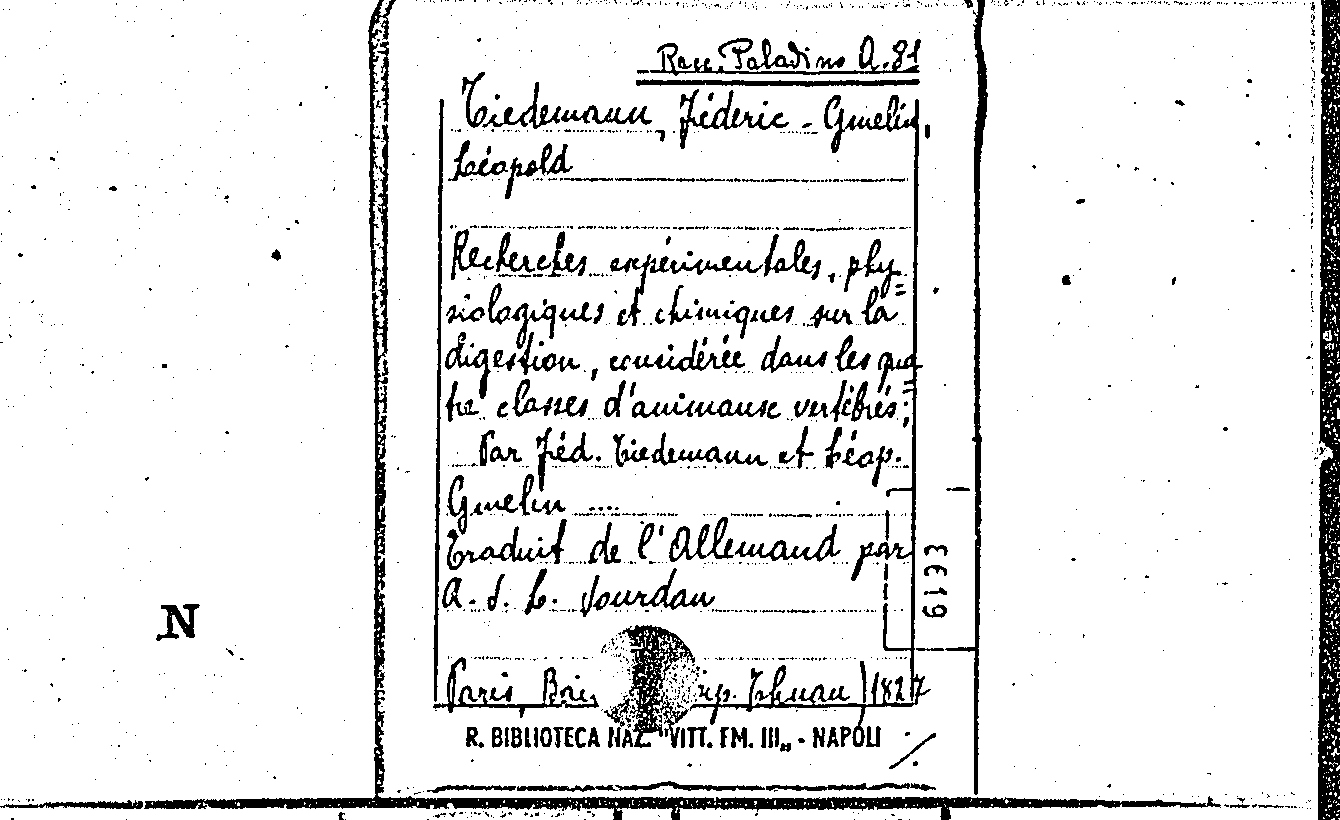 Racc. Paladino A. 81
Tiedemann, Féderic - Gmelin,
Léopold
Recherches expérimentales, phy=
siologiques et chimiques sur la
digestion, considérée dans les qua=
tre classes d'animaux vertébrés;
Par Féd. Tiedemann et Léop.
Gmelin ....
Traduit de l'Allemand par
A. J. L. Jourdan
Paris, Thuau) 1827
R. BIBLIOTECA NAZ. "VITT. EM. III„ - NAPOLI
N